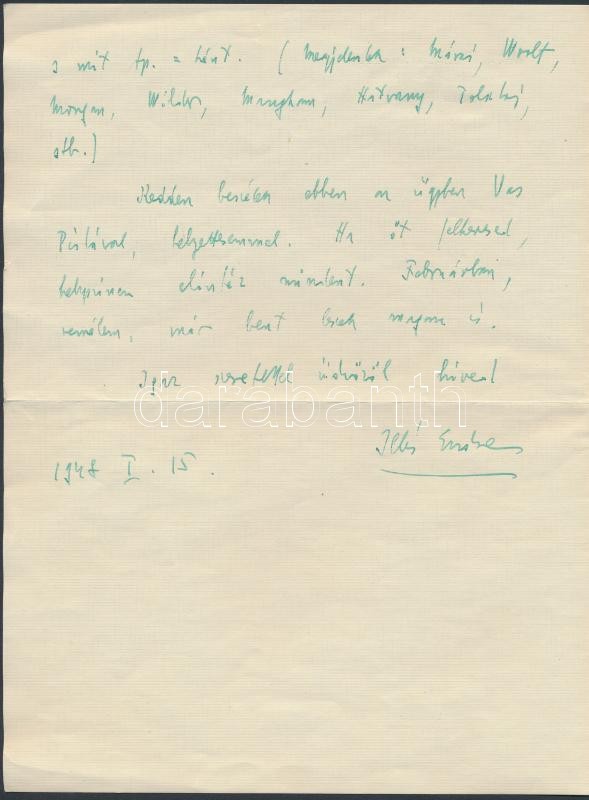 s mit    . ( Megjelentek : Márai, Woolf,
Morgan, Wilder, Maugham, Hatvany, Tolsztoj,
stb. )
Kedden beszélek ebben az ügyben Vas
Pistával, helyettesemmel. Ha őt felkeresed,
elintéz mindent. Februárban,
remélem, már bent leszek magam is.
Igaz szeretettel üdvözöl híved
Illés Endre
1948 I. 15.
darabanth